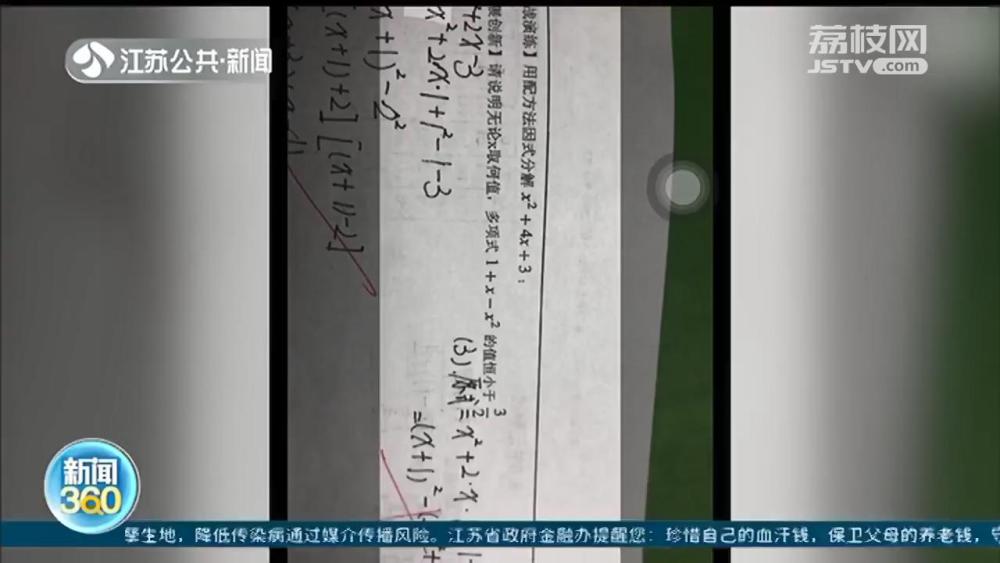 江苏公共·新闻
荔枝网
JSTV.com
战演练】用配方法因式分解 x² + 4x + 3；
创新】请说明无论x取何值，多项式 1 + x − x² 的值恒小于 3/2
+2x-3
x²+2x·1+1²-1-3
x+1)²-2²
[(x+1)+2][(x+1)-2]
(3).原式=x²+2·x·
=(x+1)²-
新闻
360
孳生地，降低传染病通过媒介传播风险。江苏省政府金融办提醒您：珍惜自己的血汗钱，保卫父母的养老钱，